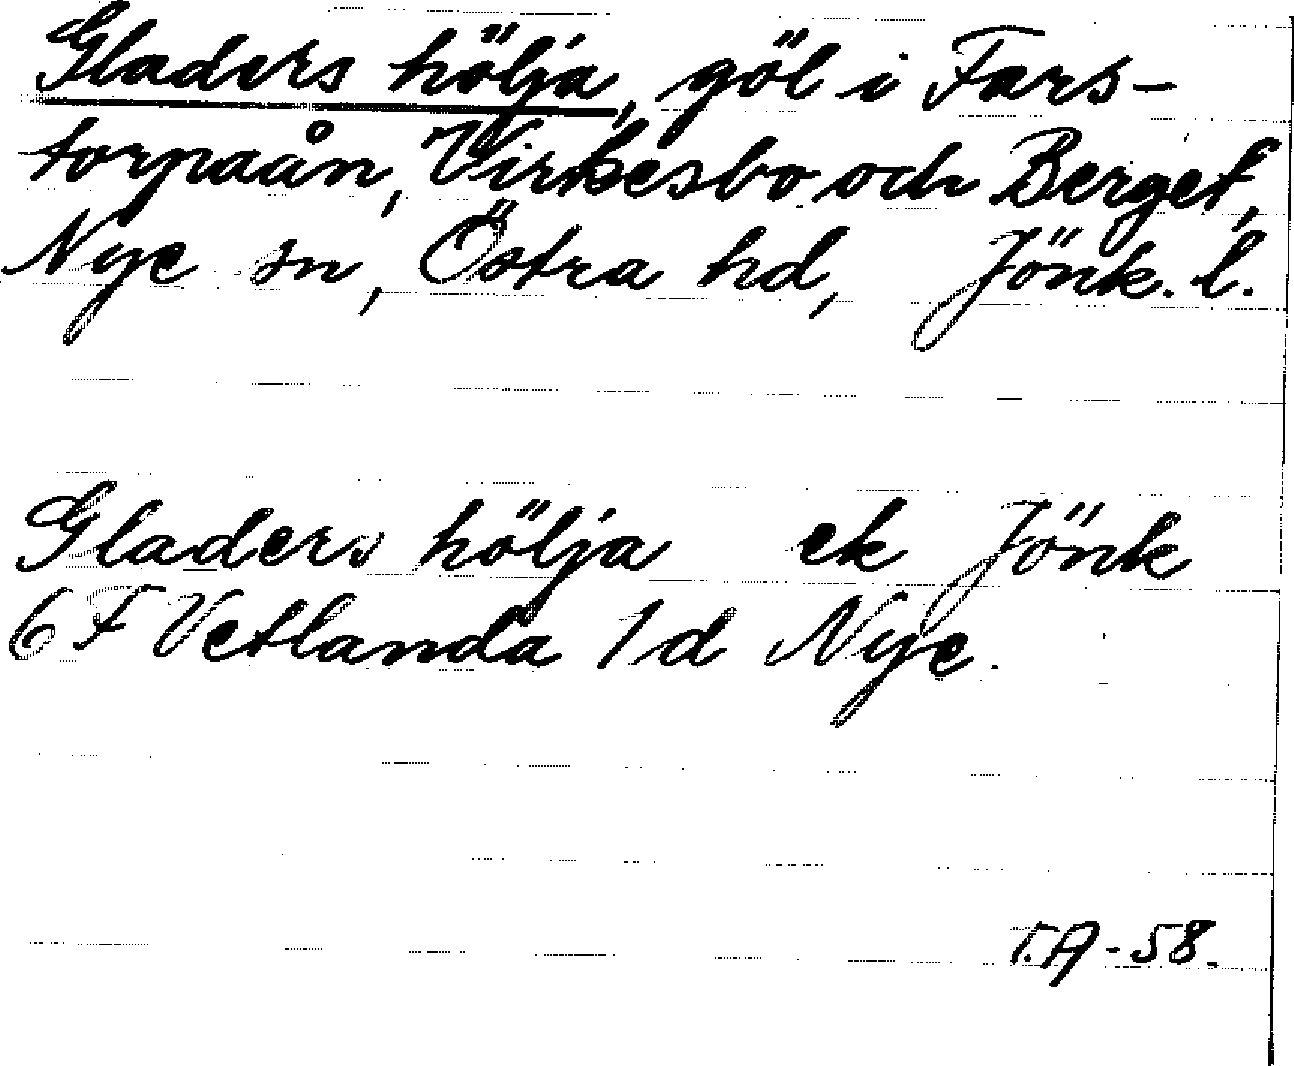 Gladers hölja, göl i Fars-
torpaån, Virkesbo och Berget,
Nye sn, Östra hd, Jönk. l.
Gladers hölja ek Jönk
6 F Vetlanda 1 d Nye.
T.A - 58.